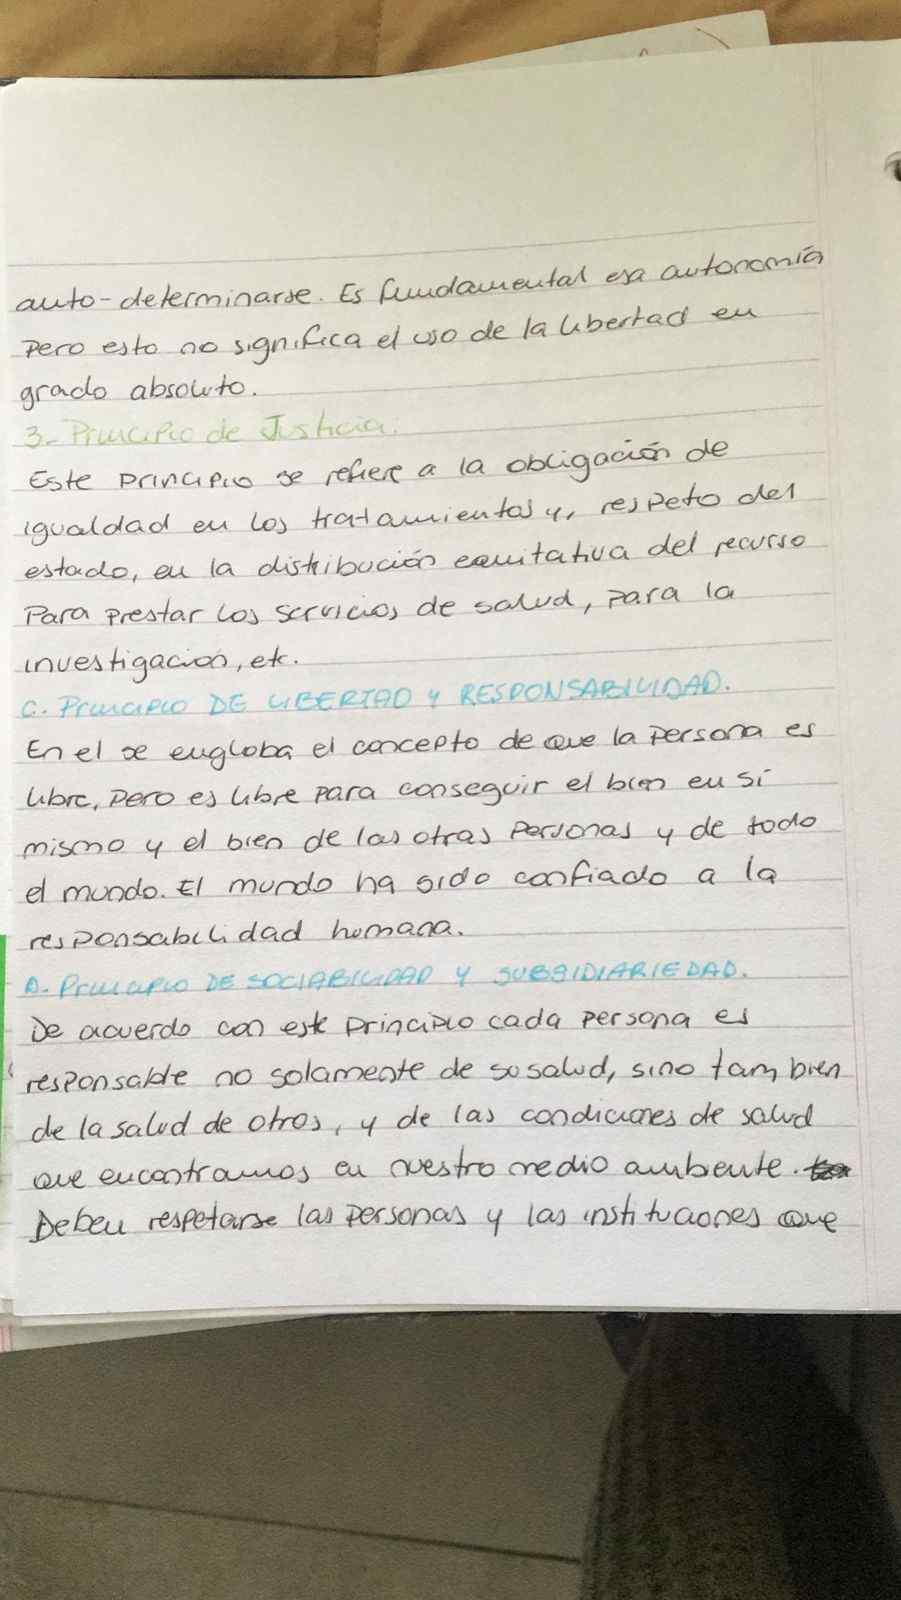 auto-determinarse. Es fundamental esa autonomía
Pero esto no significa el uso de la libertad en
grado absoluto.
3- Principio de Justicia.
Este principio se refiere a la obligación de
igualdad en los tratamientos y, respeto del
estado, en la distribución equitativa del recurso
Para prestar los servicios de salud, para la
investigación, etc.
C. Principio DE LIBERTAD Y RESPONSABILIDAD.
En el se engloba el concepto de que la persona es
libre, pero es libre para conseguir el bien en sí
mismo y el bien de las otras personas y de todo
el mundo. El mundo ha sido confiado a la
responsabilidad humana.
D. Principio DE SOCIABILIDAD Y SUBSIDIARIEDAD.
De acuerdo con este principio cada persona es
responsable no solamente de su salud, sino tambien
de la salud de otros, y de las condiciones de salud
que encontramos en nuestro medio ambiente.
Deben respetarse las personas y las instituciones que